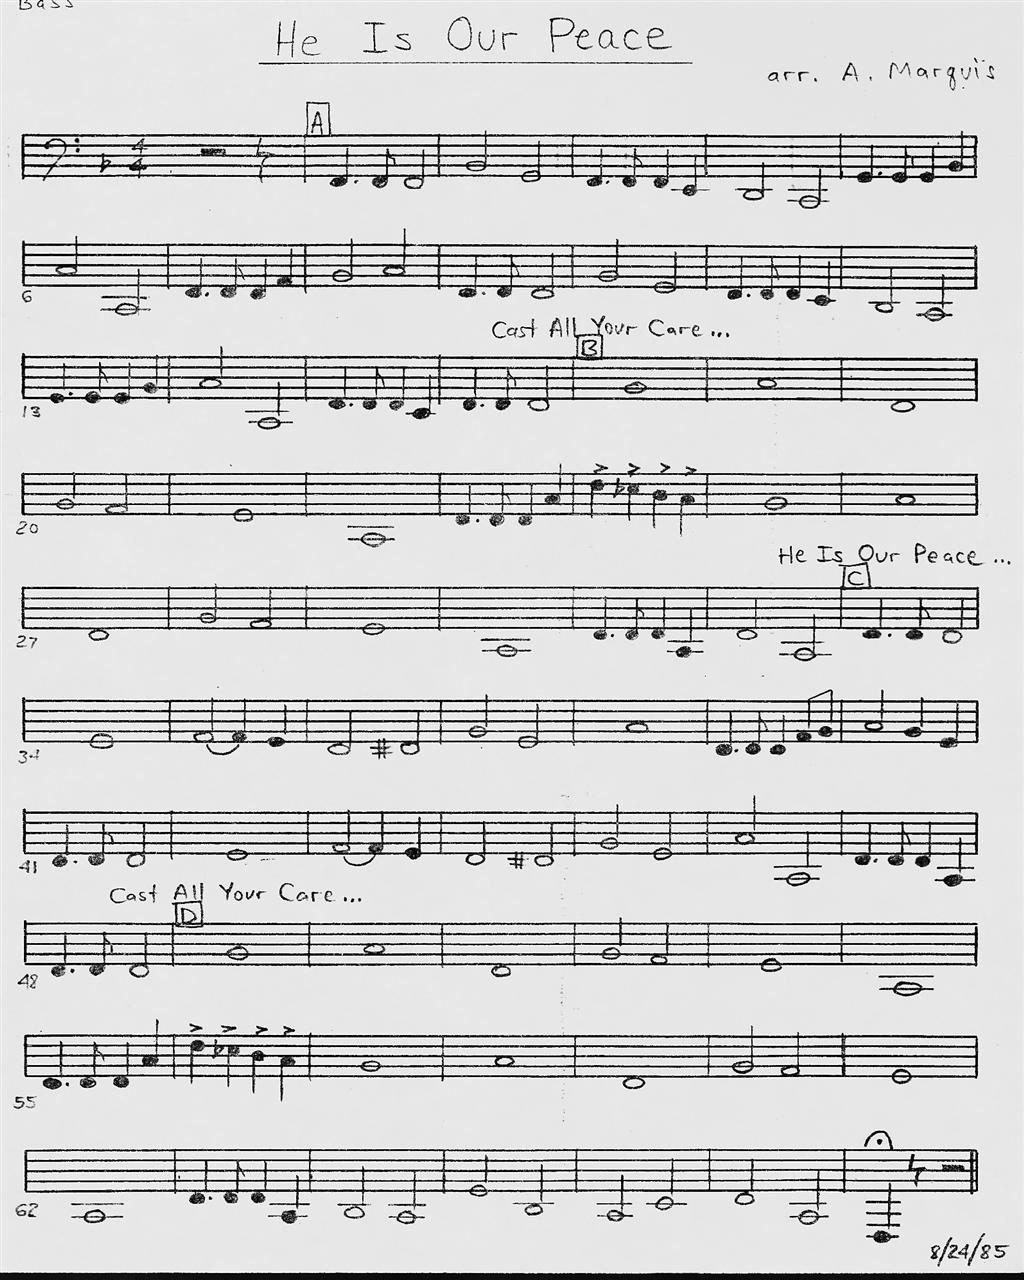 Bass
He Is Our Peace
arr. A. Marquis
A
4
4
6
Cast All Your Care...
B
13
20
He Is Our Peace...
C
27
34
41
Cast All Your Care...
D
48
55
62
8/24/85